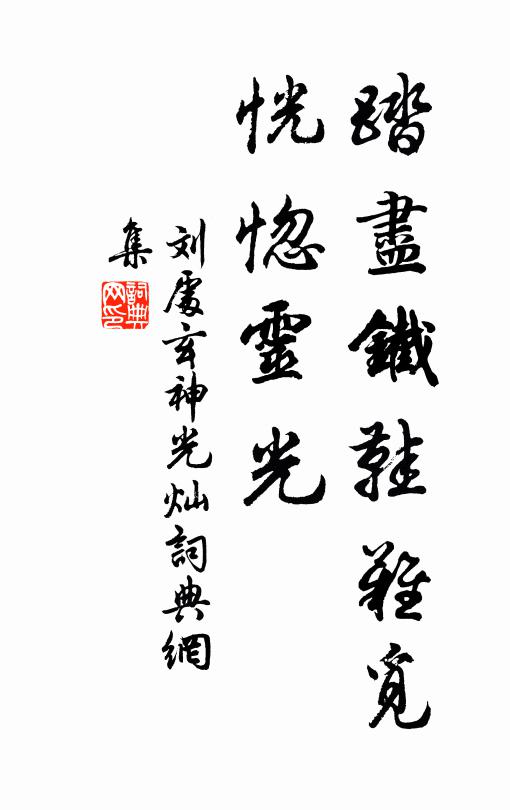 踏盡鐵鞋難覓
恍惚靈光
刘處玄神光灿詞典網
集
詞典网印